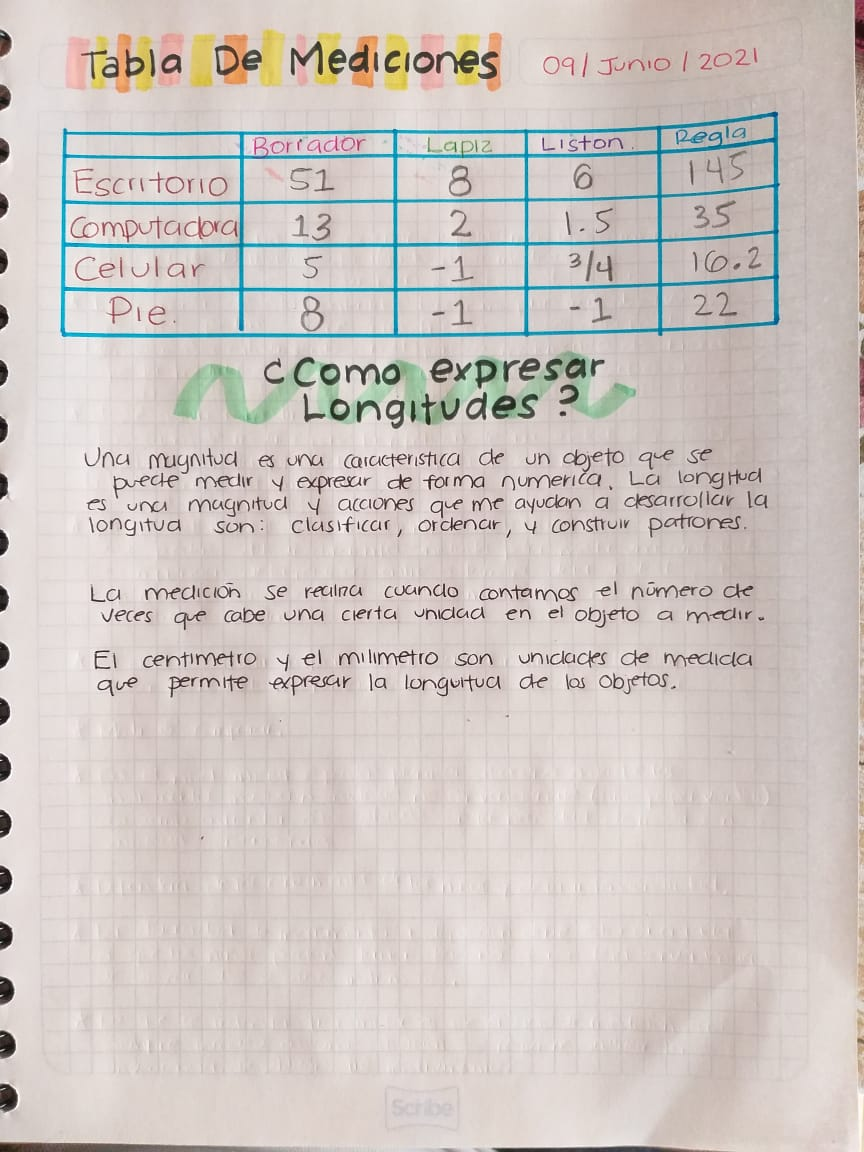 Tabla De Mediciones 09/Junio/2021
Borrador Lapiz Liston. Regla
Escritorio 51 8 6 145
Computadora 13 2 1.5 35
Celular 5 -1 3/4 16.2
Pie. 8 -1 -1 22
¿Como expresar
Longitudes?
Una magnitud es una caracteristica de un objeto que se
puede medir y expresar de forma numerica. La longitud
es una magnitud y acciones que me ayudan a desarrollar la
longitud son: clasificar, ordenar, y construir patrones.
La medición se realiza cuando contamos el número de
veces que cabe una cierta unidad en el objeto a medir.
El centimetro y el milimetro son unidades de medida
que permite expresar la longuitud de los objetos.
Scribe